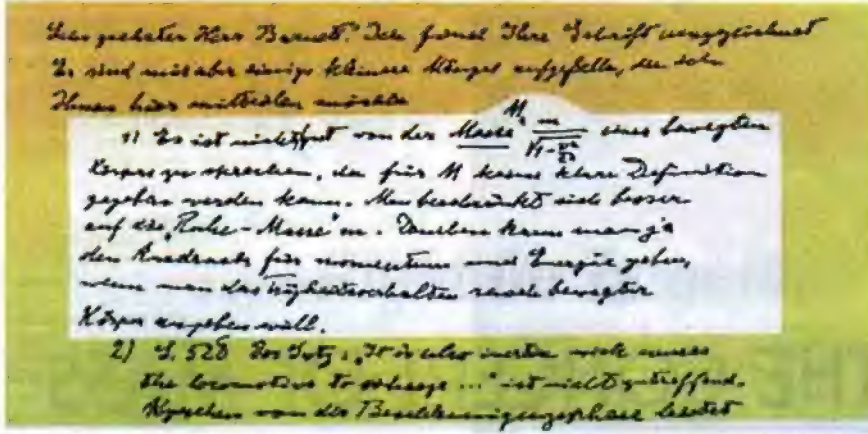 Sehr geehrter Herr Barnett! Ich finde Ihre Schrift ausgezeichnet
Es sind mir aber einige kleinere Mängel aufgefallen, die ich
Ihnen hier mitteilen möchte
1) Es ist nicht gut von der Masse M = m/√(1-v²/c²) eines bewegten
Körpers zu sprechen, da für M keine klare Definition
gegeben werden kann. Man beschränkt sich besser
auf die „Ruhe-Masse" m. Daneben kann man ja
den Ausdruck für momentum und Energie geben,
wenn man das Trägheitsverhalten rasch bewegter
Körper angeben will.
2) S. 528 Der Satz: „It is also inertia which causes
the locomotive to ..." ist nicht zutreffend.
von der Beschleunigungsphase leistet